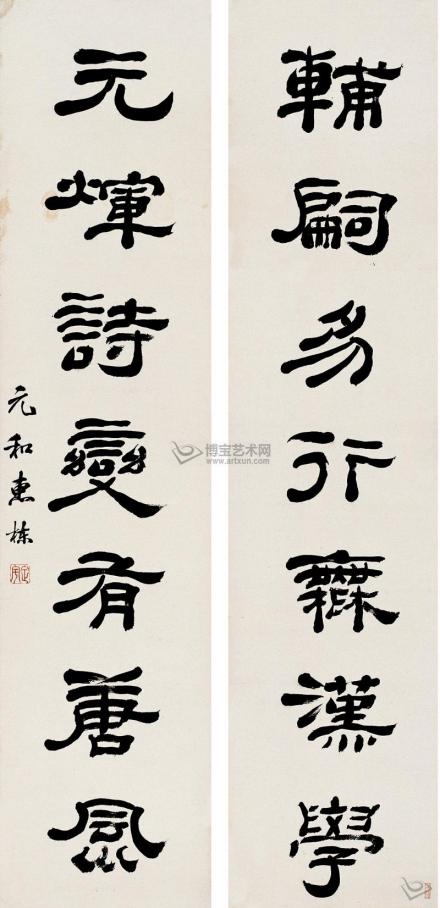 輔嗣易行無漢學
元煇詩變有唐風
元和惠棟
博宝艺术网
www.artxun.com